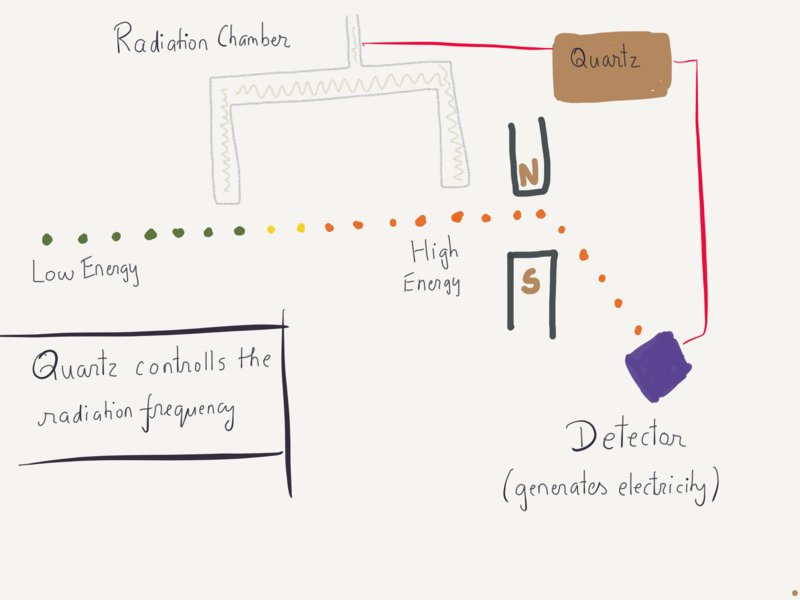 Radiation Chamber
Quartz
N
S
Low Energy
High
Energy
Quartz controlls the
radiation frequency
Detector
(generates electricity)